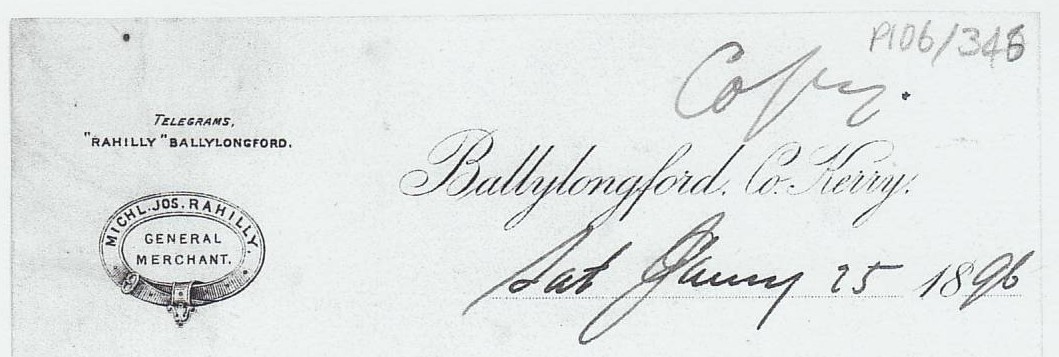 P106/345
Copy.
TELEGRAMS,
"RAHILLY" BALLYLONGFORD.
Ballylongford, Co. Kerry.
MICHL. JOS. RAHILLY.
GENERAL
MERCHANT.
Sat Jany 25 1896